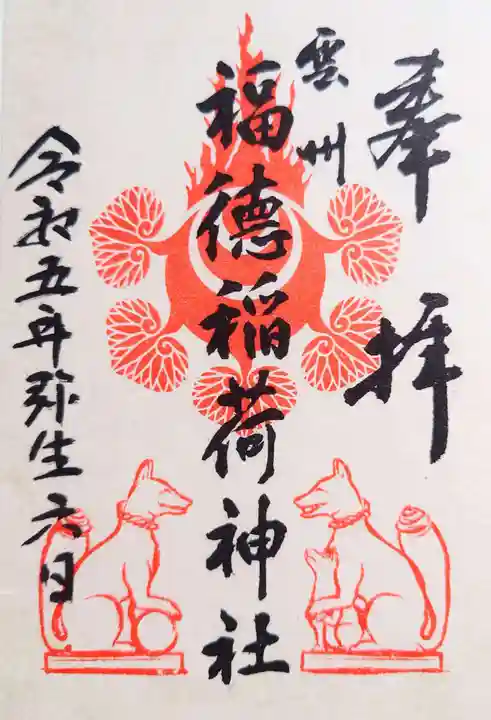 奉拝
雲州
福徳稲荷神社
令和五年弥生六日